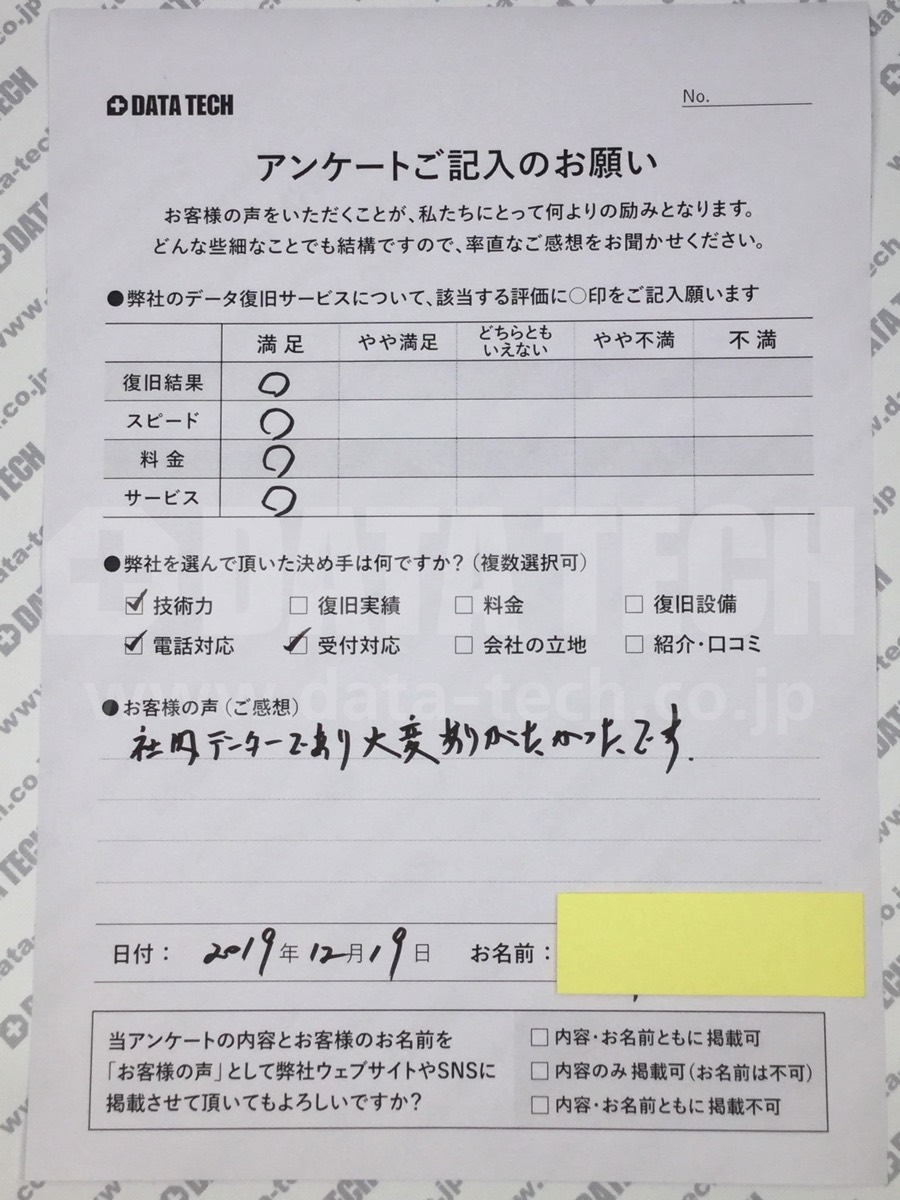 DATA TECH
No.
アンケートご記入のお願い
お客様の声をいただくことが、私たちにとって何よりの励みとなります。
どんな些細なことでも結構ですので、率直なご感想をお聞かせください。
●弊社のデータ復旧サービスについて、該当する評価に○印をご記入願います
満足 やや満足 どちらとも いえない やや不満 不満
復旧結果 ○
スピード ○
料金 ○
サービス ○
DATA TECH
●弊社を選んで頂いた決め手は何ですか?(複数選択可)
☑ 技術力 □ 復旧実績 □ 料金 □ 復旧設備
☑ 電話対応 ☑ 受付対応 □ 会社の立地 □ 紹介・口コミ
www.data-tech.co.jp
●お客様の声(ご感想)
社内データーであり大変ありがたかったです.
日付: 2019年12月19日 お名前:
当アンケートの内容とお客様のお名前を
「お客様の声」として弊社ウェブサイトやSNSに
掲載させて頂いてもよろしいですか?
□ 内容・お名前ともに掲載可
□ 内容のみ掲載可(お名前は不可)
□ 内容・お名前ともに掲載不可